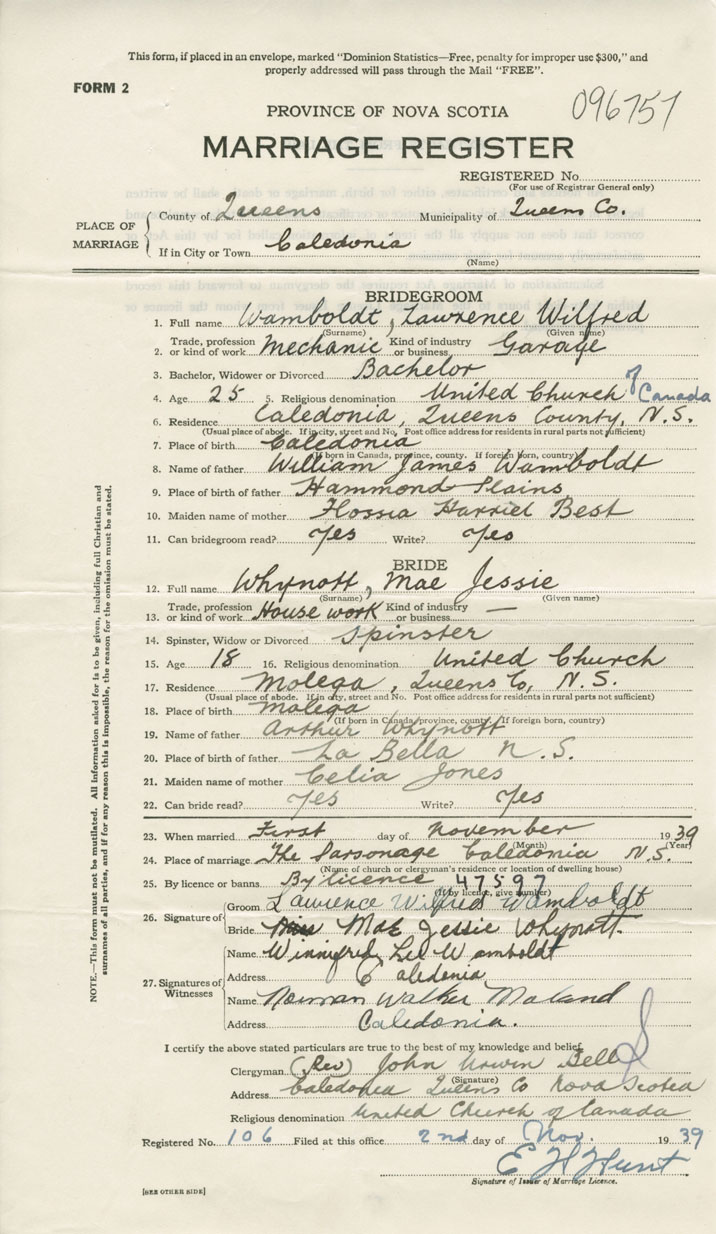 This form, if placed in an envelope, marked "Dominion Statistics—Free, penalty for improper use $300," and
properly addressed will pass through the Mail "FREE".
FORM 2
096757
PROVINCE OF NOVA SCOTIA
MARRIAGE REGISTER
REGISTERED No.
(For use of Registrar General only)
PLACE OF MARRIAGE
County of Queens Municipality of Queens Co.
If in City or Town Caledonia
(Name)
BRIDEGROOM
1. Full name Wamboldt, Lawrence Wilfred
(Surname) (Given name)
2. Trade, profession or kind of work Mechanic Kind of industry or business Garage
3. Bachelor, Widower or Divorced Bachelor
4. Age 25 5. Religious denomination United Church of Canada
6. Residence Caledonia, Queens County, N.S.
(Usual place of abode. If in city, street and No. Post office address for residents in rural parts not sufficient)
7. Place of birth Caledonia
(If born in Canada, province, county. If foreign born, country)
8. Name of father William James Wamboldt
9. Place of birth of father Hammond Plains
10. Maiden name of mother Flossia Harriel Best
11. Can bridegroom read? Yes Write? Yes
BRIDE
12. Full name Whynott, Mae Jessie
(Surname) (Given name)
13. Trade, profession or kind of work House work Kind of industry or business —
14. Spinster, Widow or Divorced Spinster
15. Age 18 16. Religious denomination United Church
17. Residence Molega, Queens Co, N.S.
(Usual place of abode. If in city, street and No. Post office address for residents in rural parts not sufficient)
18. Place of birth Molega
(If born in Canada, province, county. If foreign born, country)
19. Name of father Arthur Whynott
20. Place of birth of father La Bella N.S.
21. Maiden name of mother Celia Jones
22. Can bride read? Yes Write? Yes
23. When married First day of November 1939
(Month) (Year)
24. Place of marriage The Parsonage Caledonia N.S.
(Name of church or clergyman's residence or location of dwelling house)
25. By licence or banns By licence 47597
(If by licence, give number)
26. Signature of
Groom Lawrence Wilfred Wamboldt
Bride Mae Jessie Whynott
27. Signatures of Witnesses
Name Winnifred Lee Wamboldt
Address Caledonia
Name Norman Walker
Address Caledonia.
I certify the above stated particulars are true to the best of my knowledge and belief.
Clergyman (Rev) John Bell
(Signature)
Address Caledonia Queens Co Nova Scotia
Religious denomination United Church of Canada
Registered No. 106 Filed at this office 2nd day of Nov. 1939
E H Hunt
Signature of Issuer of Marriage Licence.
[SEE OTHER SIDE]
NOTE.—This form must not be mutilated. All information asked for is to be given, including full Christian and
surnames of all parties, and if for any reason this is impossible, the reason for the omission must be stated.